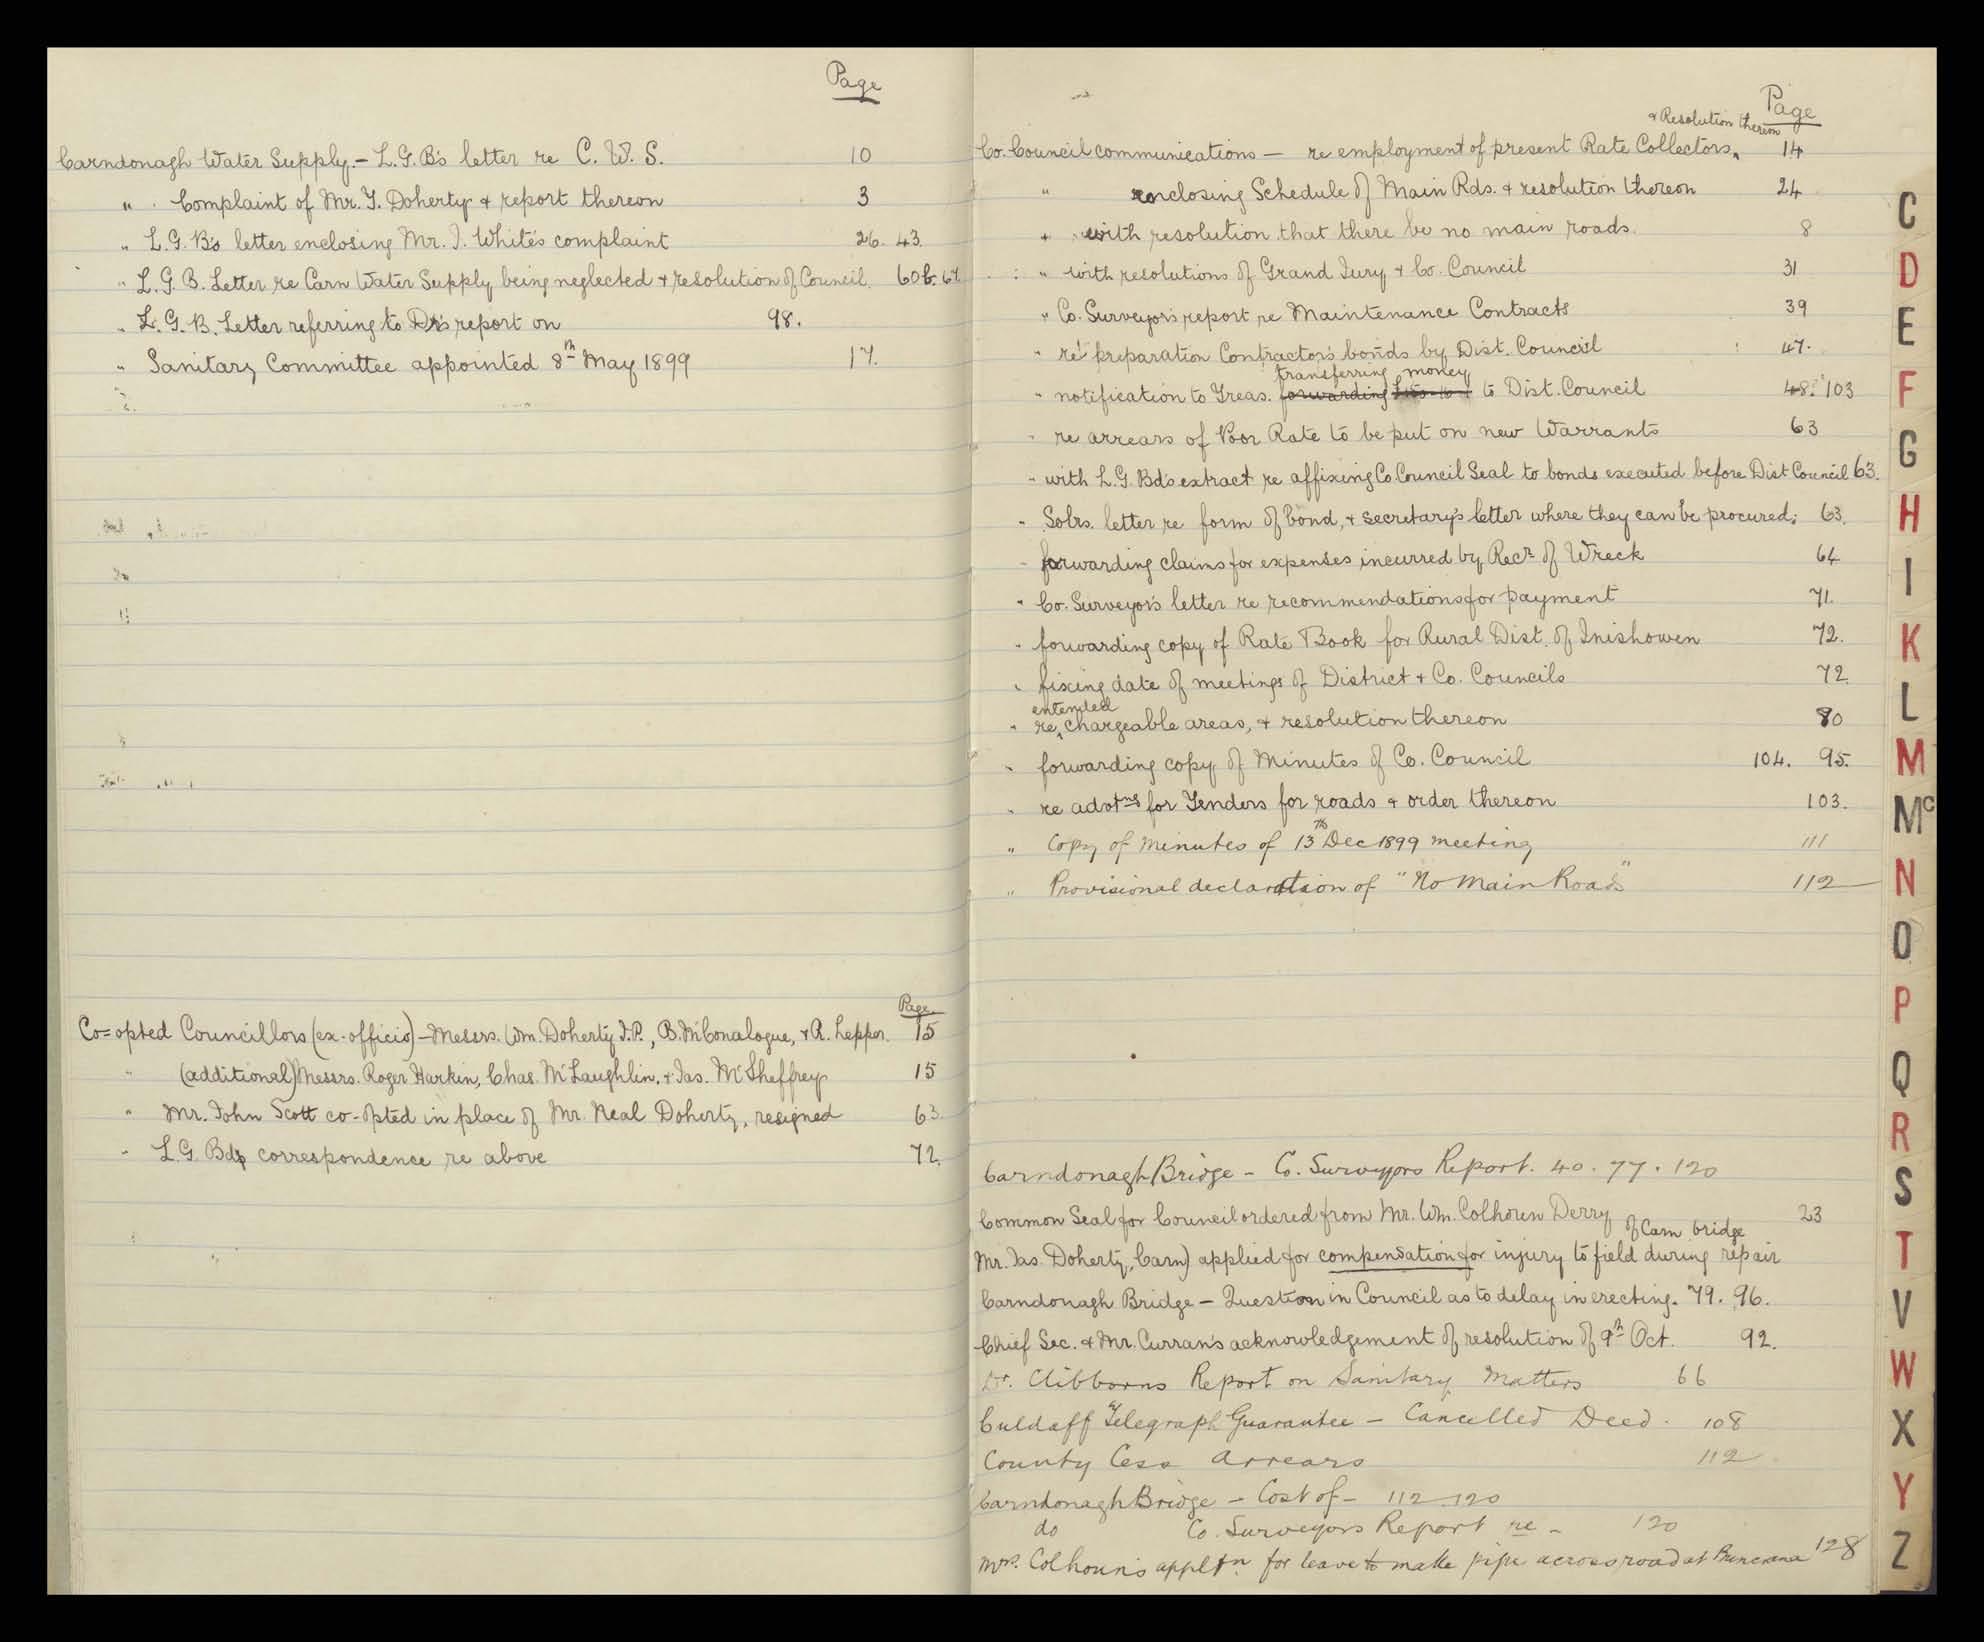 Page
Carndonagh Water Supply. - L.G.B's letter re C. W. S. 10
" Complaint of Mr. J. Doherty & report thereon 3
" L.G.B's letter enclosing Mr. J. White's complaint 26. 43.
" L.G.B. Letter re Carn Water Supply being neglected & resolution of Council. 60 67
" L.G.B. Letter referring to Dr's report on 98.
" Sanitary Committee appointed 8th May 1899 17.
Page
Co=opted Councillors (ex-officio) - Messrs. Wm. Doherty J.P., B. McConalogue, & R. Lepper. 15
" (additional) Messrs. Roger Harkin, Chas. McLaughlin, & Jas. McSheffrey 15
" Mr. John Scott co-opted in place of Mr. Neal Doherty, resigned 63.
" L.G. Bds correspondence re above 72.
Page
& Resolution thereon
Co. Council communications - re employment of present Rate Collectors, 14
" enclosing Schedule of Main Rds. & resolution thereon 24
" with resolution that there be no main roads. 8
" with resolutions of Grand Jury & Co. Council 31
" Co. Surveyor's report re Maintenance Contracts 39
" re preparation Contractor's bonds by Dist. Council 47.
transferring money
" notification to Treas. forwarding to Dist. Council 48. 103
" re arrears of Poor Rate to be put on new Warrants 63
" with L.G. Bd's extract re affixing Co. Council Seal to bonds executed before Dist Council 63.
" Solrs. letter re form of bond, & secretary's letter where they can be procured; 63.
" forwarding claims for expenses incurred by Recr. of Wreck 64
" Co. Surveyor's letter re recommendations for payment 71.
" forwarding copy of Rate Book for Rural Dist. of Inishowen 72.
" fixing date of meetings of District & Co. Councils 72.
extended
" re chargeable areas, & resolution thereon 80
" forwarding copy of Minutes of Co. Council 104. 95.
" re advtns for Tenders for roads & order thereon 103.
" Copy of Minutes of 13th Dec 1899 meeting 111
" Provisional declaration of "No Main Roads" 112
Carndonagh Bridge - Co. Surveyors Report. 40. 77. 120
Common Seal for Council ordered from Mr. Wm. Colhoun Derry 23
of Carn bridge
Mr. Jas. Doherty, Carn) applied for compensation for injury to field during repair
Carndonagh Bridge - Question in Council as to delay in erecting. 79. 96.
Chief Sec. & Mr. Curran's acknowledgement of resolution of 9th Oct. 92.
Dr. Clibborns Report on Sanitary Matters 66
Culdaff Telegraph Guarantee - Cancelled Deed. 108
County Cess Arrears 112
Carndonagh Bridge - Cost of - 112 120
do Co. Surveyors Report re - 120
Mrs. Colhoun's appltn. for leave to make pipe across road at Buncrana 128
C
D
E
F
G
H
I
K
L
M
Mc
N
O
P
Q
R
S
T
V
W
X
Y
Z